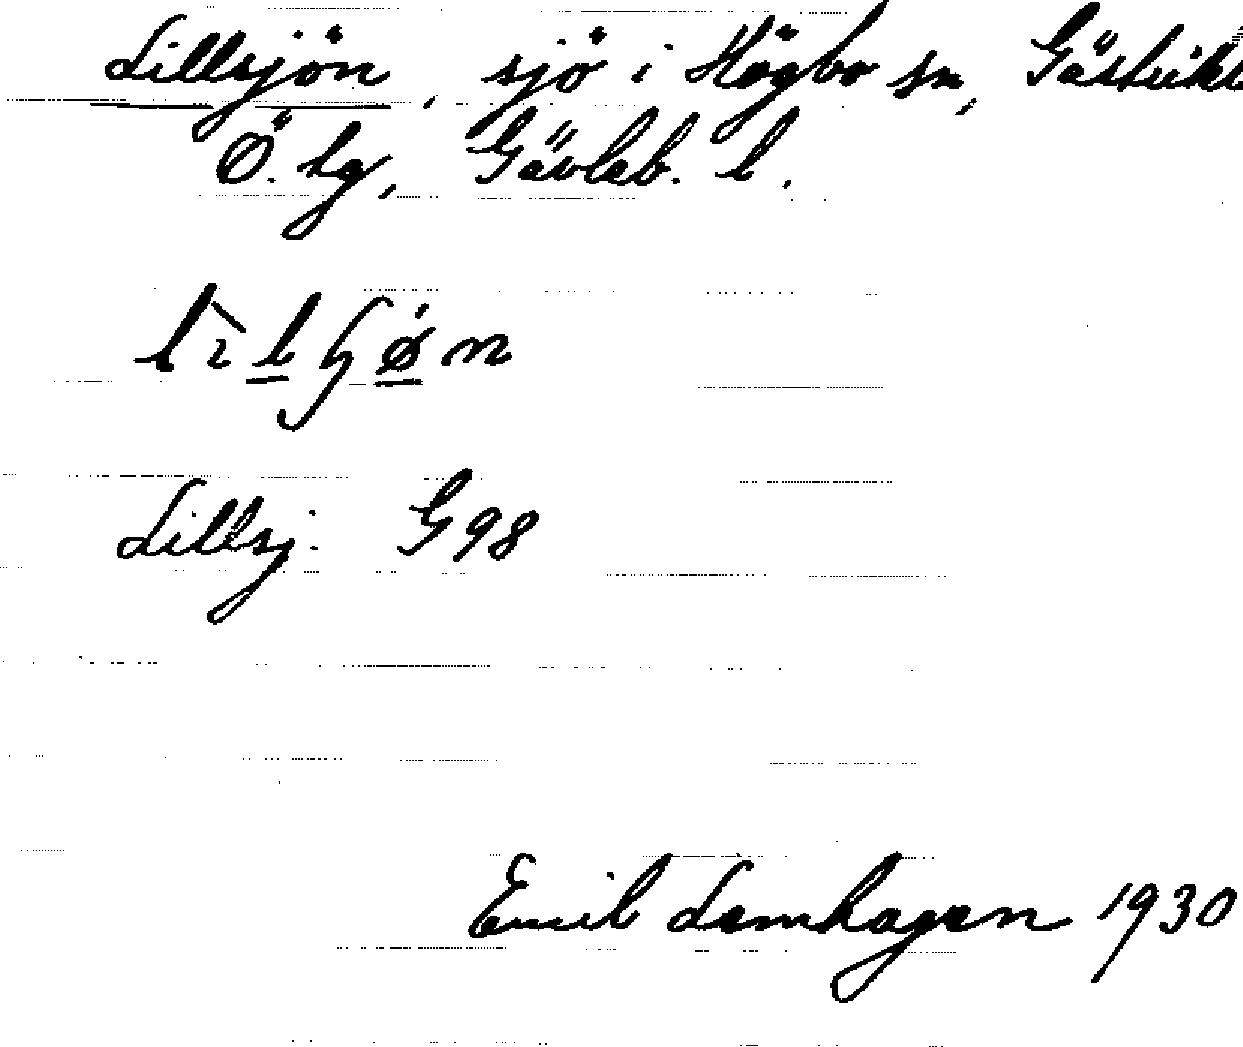 Lillsjön, sjö i Högbo sn, Gästrikl
Ö. hg, Gävleb. l.
Lillsj. G 98
Emil Lamhagen 1930